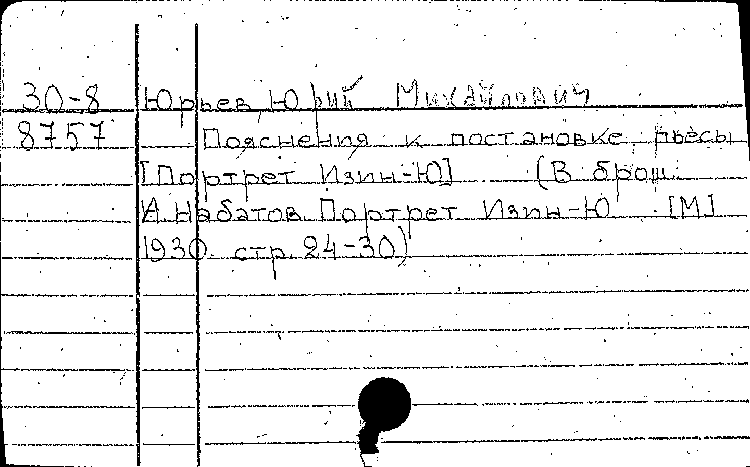 30-8 Юрьев, Юрий Михайлович
8757 Пояснения к постановке пьесы
[Портрет Изин-Ю] (В брош.
А. Набатов. Портрет Изин-Ю [М]
1930. стр. 24-30)